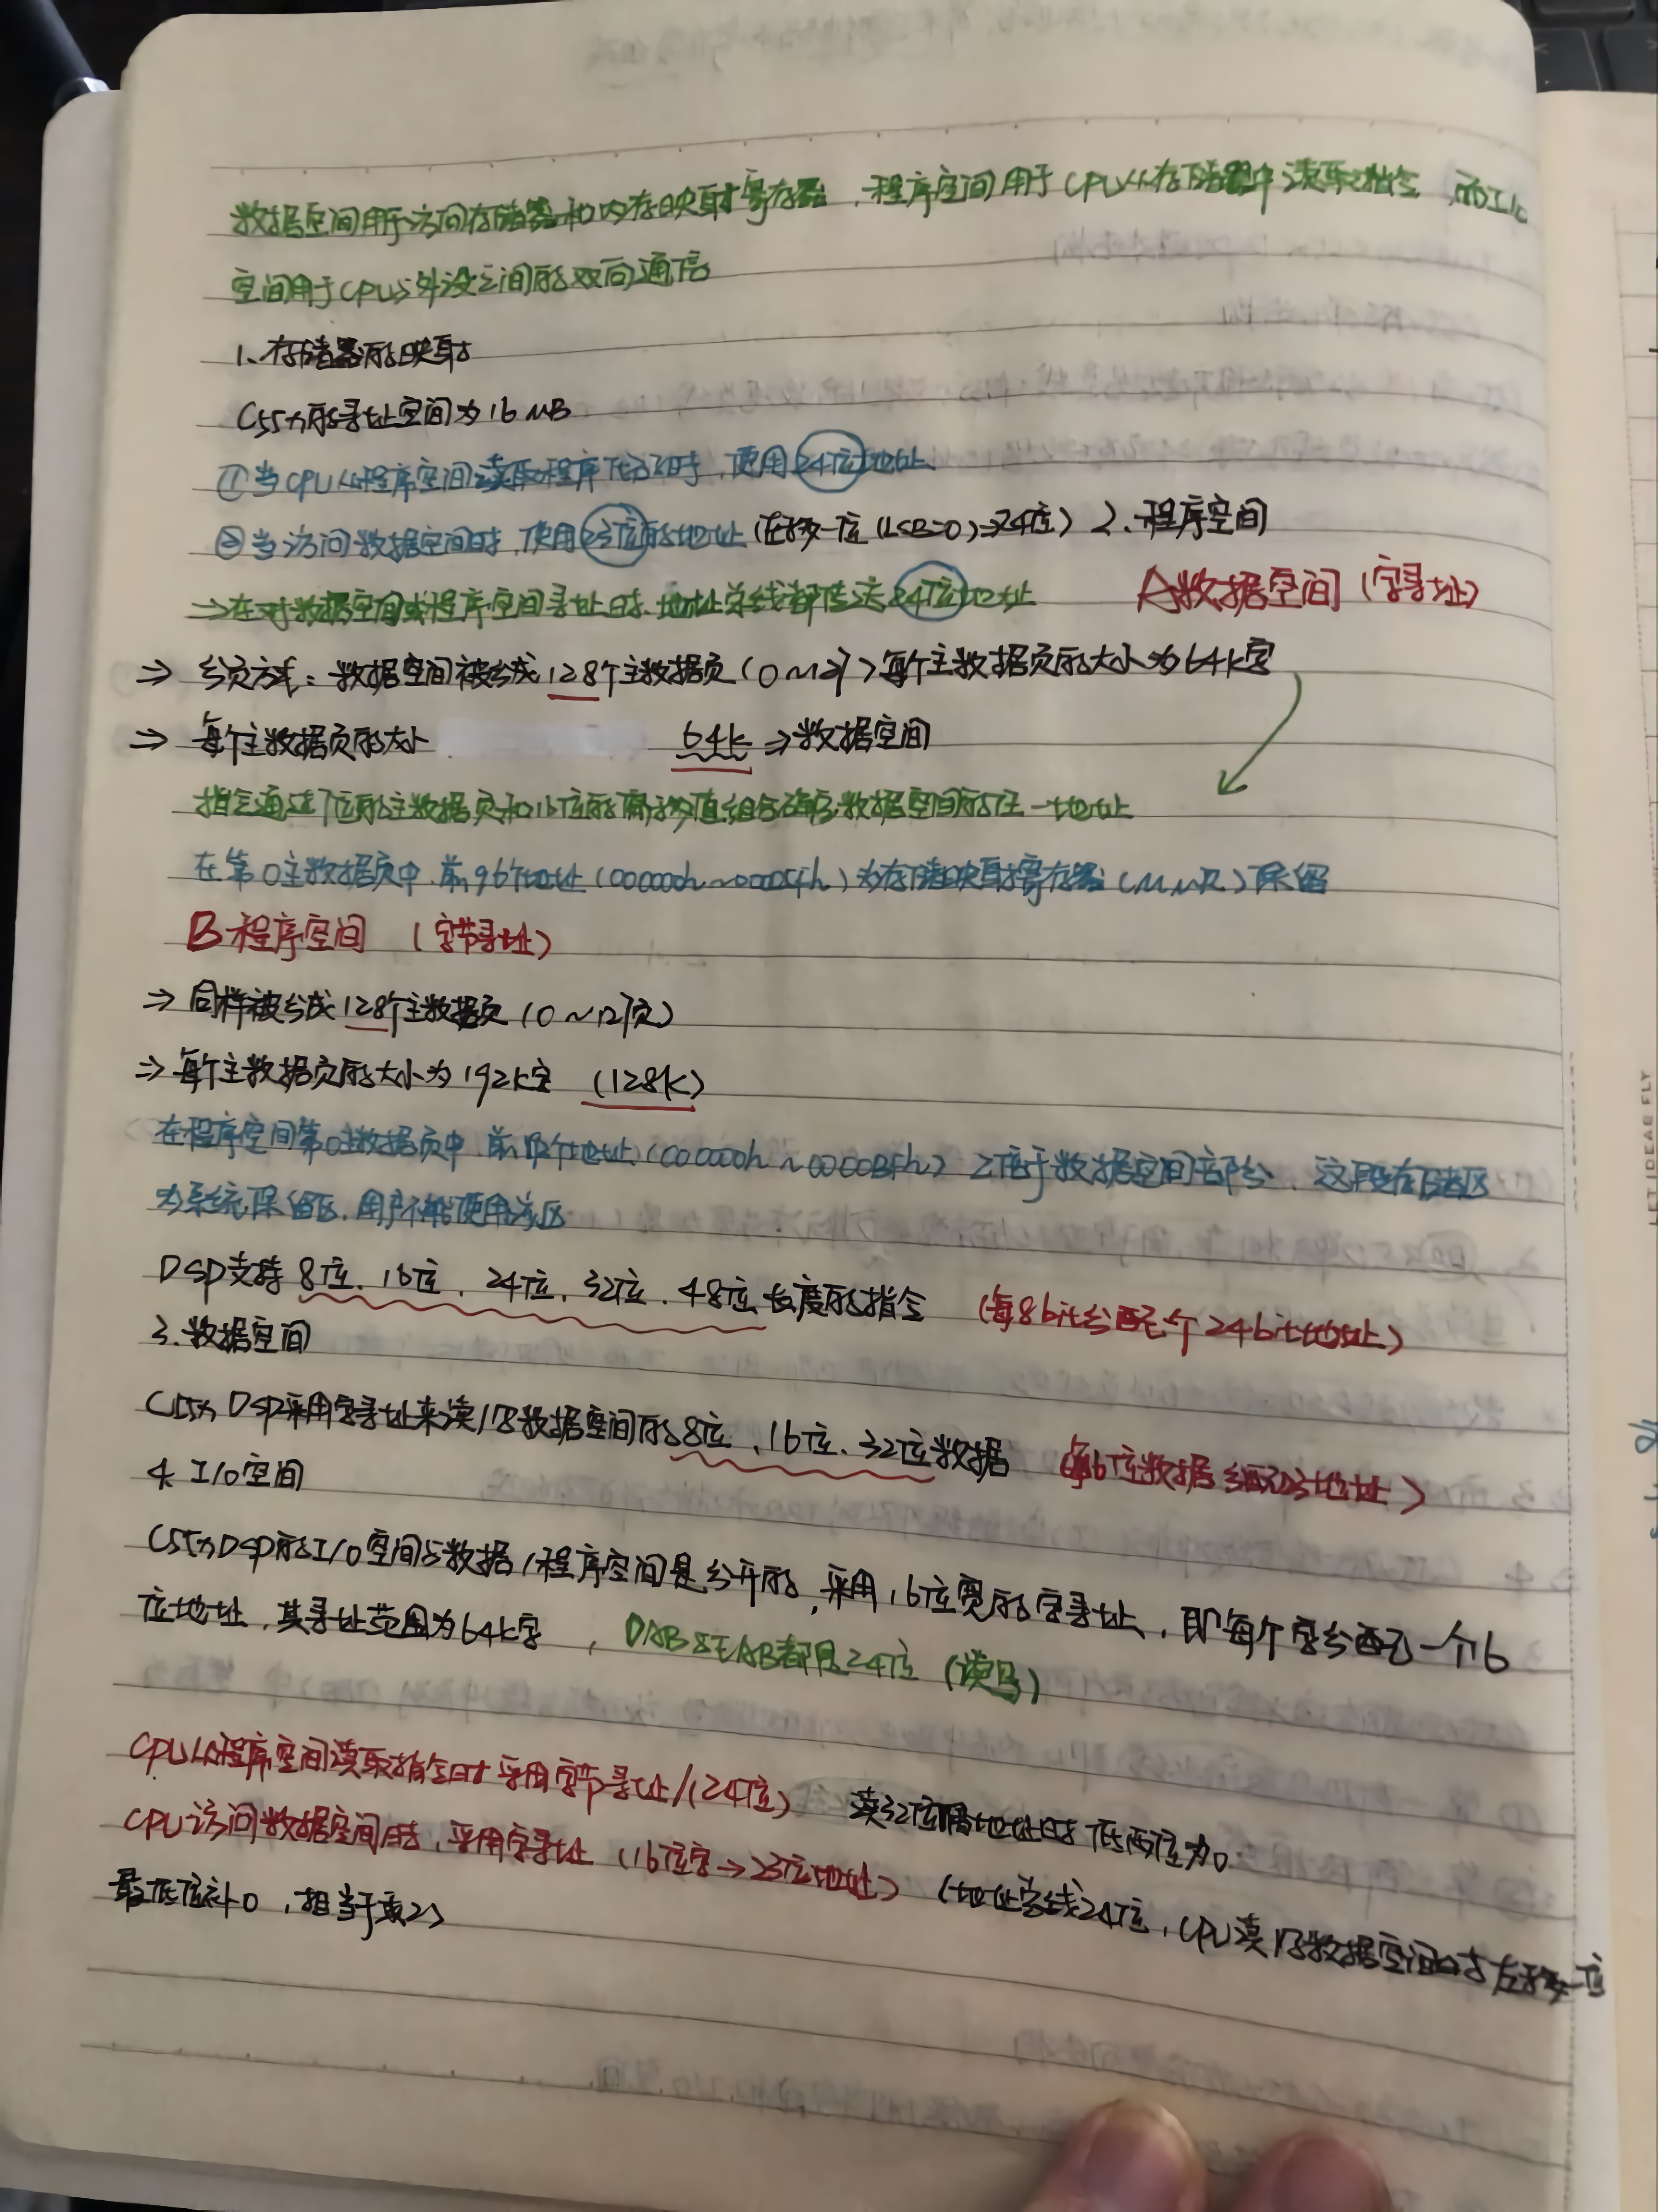 数据空间用于访问存储器和内存映射寄存器，程序空间用于CPU从存储器中读取指令，而I/O
空间用于CPU与外设之间的双向通信
1、存储器的映射
C55x的寻址空间为16MB
①当CPU从程序空间读取程序代码时，使用24位地址
②当访问数据空间时，使用23位的地址（左移一位（LSB=0）⇒24位） 2、程序空间
⇒在对数据空间或程序空间寻址时，地址总线都传送24位地址 A数据空间（字寻址）
⇒ 分页方式：数据空间被分成128个主数据页（0~127）每个主数据页的大小为64K字
⇒ 每个主数据页的大小 64K ⇒数据空间
指令通过7位的主数据页和16位的偏移值组合确定数据空间的任一地址
在第0主数据页中，前96个地址（000000h~00005Fh）为存储映射寄存器（MMR）保留
B 程序空间 （字节寻址）
⇒ 同样被分成128个主数据页（0~127页）
⇒每个主数据页的大小为192K字 （128K）
在程序空间第0主数据页中，前192个地址（000000h~0000BFh）位于数据空间部分，这段存储区
为系统保留区，用户不能使用该区
DSP支持8位、16位、24位、32位、48位长度的指令 （每8bit分配一个24bit地址）
3.数据空间
C55x DSP采用字寻址来读/写数据空间的8位、16位、32位数据 每16位数据分配23地址）
4 I/O空间
C55x DSP的I/O空间与数据/程序空间是分开的，采用16位宽的字寻址，即每个字分配一个16
位地址，其寻址范围为64K字，DAB与EAB都是24位（读写）
CPU从程序空间读取指令时采用字节寻址/（24位） 读32位 地址时低两位为0
CPU访问数据空间时，采用字寻址（16位字→23位地址）（地址总线24位，CPU读/写数据空间时左移一位
最低位补0，相当于乘2）
LET IDEAS FLY